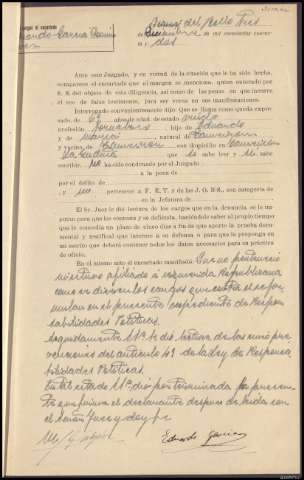 Eduardo García
dos
Ante este Juzgado, y en virtud de la citación que le ha sido hecha,
comparece el encartado que al margen se menciona, quien enterado por
S. S. del objeto de esta diligencia, así como de las penas en que incurre
el reo de falso testimonio, juró ser veraz en sus manifestaciones.
Interrogado convenientemente dijo: Que se llama como queda expre-
sado, de años de edad de estado
profesión hijo de Eduardo
y de María natural de
y vecino de con domicilio en
que si sabe leer y si sabe
escribir, no ha sido condenado por el Juzgado
a la pena de
por el delito de
y no pertenece a F. E. T. y de las J. O. N-S., con categoría de
en la Jefatura de
El Sr. Juez le dió lectura de los cargos que en la denuncia se le im-
putan para que los contesta y se defienda, haciéndole saber al propio tiempo
que le concedía un plazo de cinco días a fin de que aporte la prueba docu-
mental y testifical que interese a su defensa y para que la proponga en
un escrito que deberá contener todos los datos necesarios para su práctica
de oficio.
En el mismo acto el encartado manifiesta: Que no pertenecio
ni estuvo afiliado a izquierda Republicana
como se dice en los cargos que contra el se for-
mulan en el presente expediente de Respon
sabilidades Politicas.
Seguidamente Sª Sª dio lectura de las cinco pre
venciones del articulo 49 de la Ley de Responsa
bilidades Politicas.
En tal estado Sª Sª dio por terminada la presente
que firma el declarante despues de leida con
el señor Juez y doy fe
Eduardo García